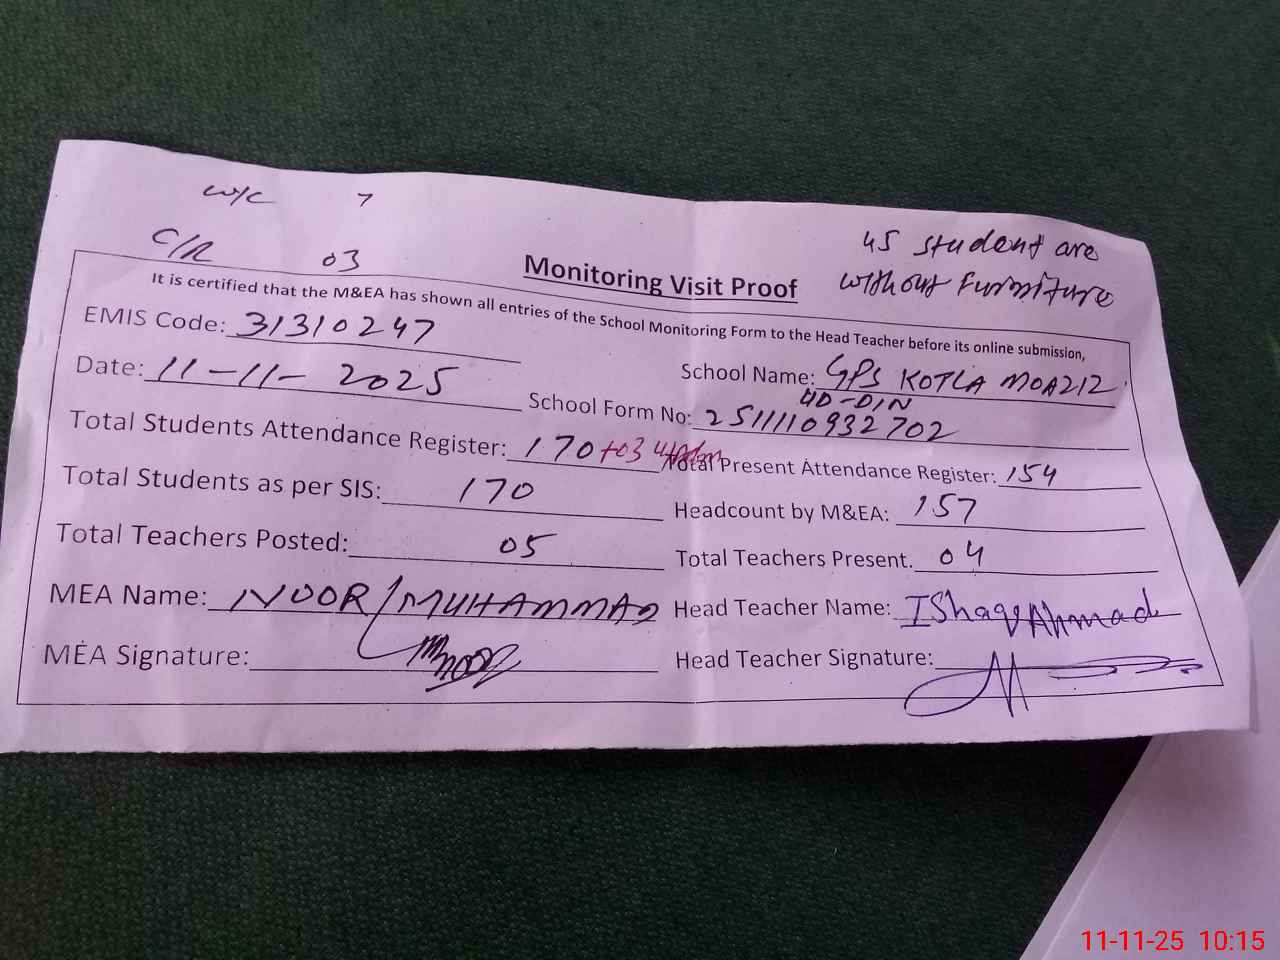 w/c 7
C/R 03
45 student are
without furniture
Monitoring Visit Proof
It is certified that the M&EA has shown all entries of the School Monitoring Form to the Head Teacher before its online submission,
EMIS Code: 31310247
School Name: GPS KOTLA MOAZIZ
UD-DIN
Date: 11-11-2025
School Form No: 2511110932702
Total Students Attendance Register: 170 +03
Total Present Attendance Register: 154
Total Students as per SIS: 170
Headcount by M&EA: 157
Total Teachers Posted: 05
Total Teachers Present. 04
MEA Name: NOOR MUHAMMAD
Head Teacher Name: IShaqe Ahmad
MEA Signature:
Head Teacher Signature:
11-11-25 10:15